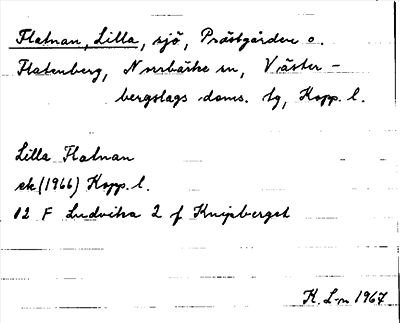 Flatnan, Lilla, sjö, Prästgården o.
Flatenberg, Norrbärke sn, Väster-
bergslags doms. tg, Kopp. l.
Lilla Flatnan
ek (1966) Kopp. l.
12 F Ludvika 2 f Knipberget
K. L-m 1967